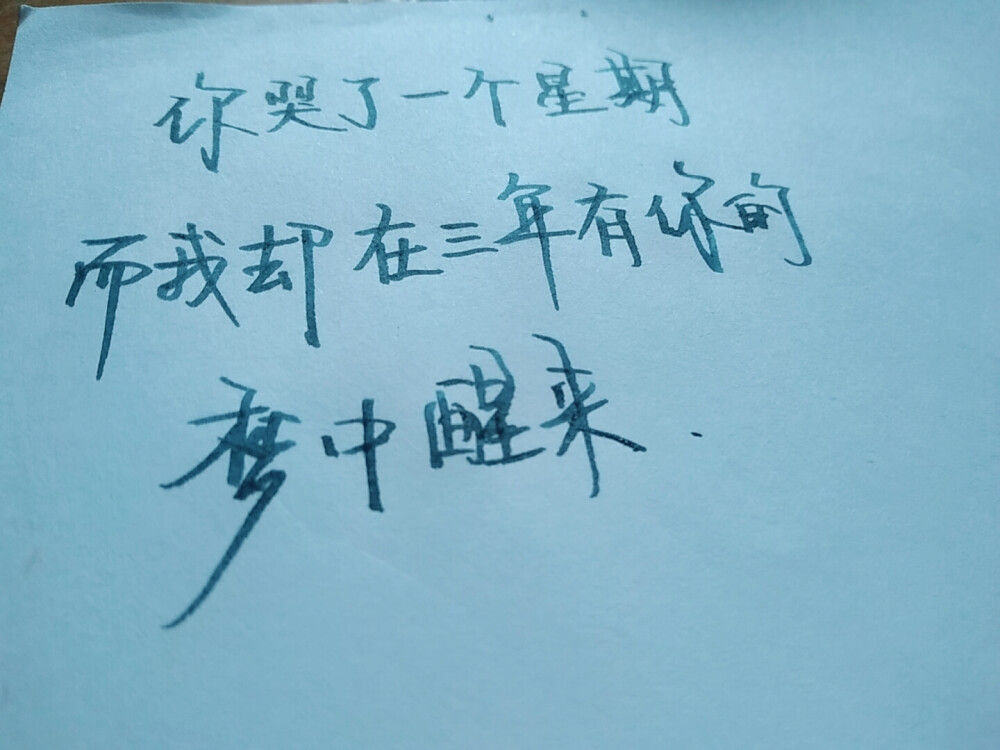 你哭了一个星期
而我却在三年有你的
梦中醒来.